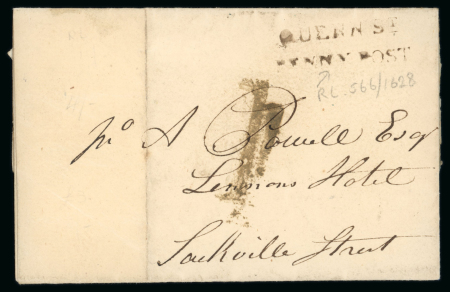 QUEEN ST
PENNY POST
RL 566/1628
A Powell Esqr
Lennons Hotel
Sackville Street